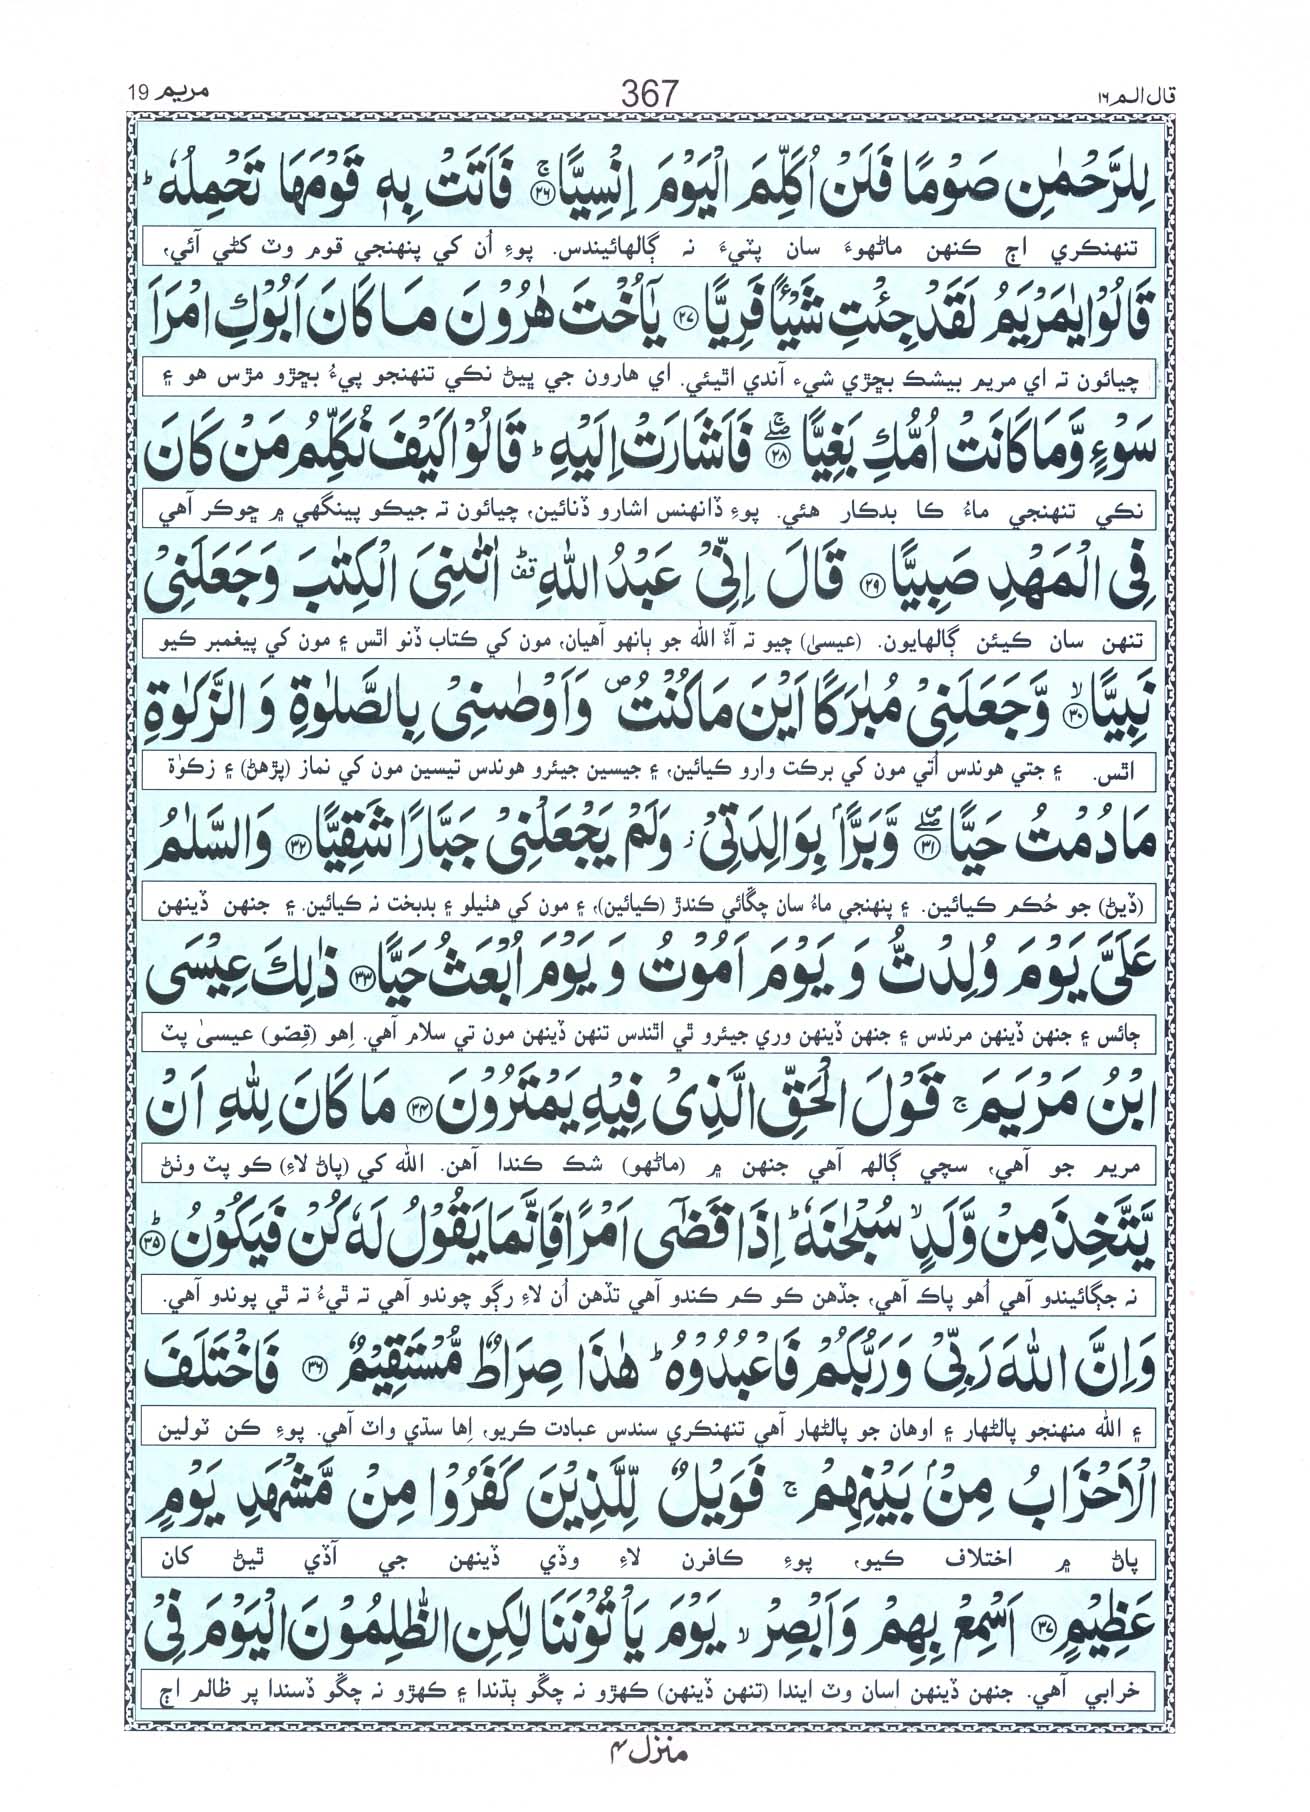 قال الم ١٦
367
مريم 19
لِلرَّحْمٰنِ صَوْمًا فَلَنْ اُكَلِّمَ الْيَوْمَ اِنْسِيًّا ۚ ﴿٢٦﴾ فَاَتَتْ بِهٖ قَوْمَهَا تَحْمِلُهٗ ؕ
تنهنڪري اڄ ڪنهن ماڻهوءَ سان پٽيءَ نہ ڳالهائيندس. پوءِ اُن کي پنهنجي قوم وٽ کڻي آئي،
قَالُوْا يٰمَرْيَمُ لَقَدْ جِئْتِ شَيْـًٔا فَرِيًّا ﴿٢٧﴾ يٰۤاُخْتَ هٰرُوْنَ مَا كَانَ اَبُوْكِ امْرَاَ
چيائون تہ اي مريم بيشڪ بڇڙي شيء آندي اٿيئي. اي هارون جي ڀيڻ نڪي تنهنجو پيءُ بڇڙو مڙس هو ۽
سَوْءٍ وَّمَا كَانَتْ اُمُّكِ بَغِيًّا ۖۚ ﴿٢٨﴾ فَاَشَارَتْ اِلَيْهِ ؕ قَالُوْا كَيْفَ نُكَلِّمُ مَنْ كَانَ
نڪي تنهنجي ماءُ ڪا بدڪار هئي. پوءِ ڏانهنس اشارو ڏنائين، چيائون تہ جيڪو پينگهي ۾ ڇوڪر آهي
فِى الْمَهْدِ صَبِيًّا ﴿٢٩﴾ قَالَ اِنِّىْ عَبْدُ اللّٰهِ ؕقف اٰتٰىنِىَ الْكِتٰبَ وَجَعَلَنِىْ
تنهن سان ڪيئن ڳالهايون. (عيسىٰ) چيو تہ آءٌ الله جو ٻانهو آهيان، مون کي ڪتاب ڏنو اٿس ۽ مون کي پيغمبر ڪيو
نَبِيًّا ۙ ﴿٣٠﴾ وَّجَعَلَنِىْ مُبٰرَكًا اَيْنَ مَا كُنْتُ ص وَاَوْصٰىنِىْ بِالصَّلٰوةِ وَالزَّكٰوةِ
اٿس. ۽ جتي هوندس اُتي مون کي برڪت وارو ڪيائين، ۽ جيسين جيئرو هوندس تيسين مون کي نماز (پڙهڻ) ۽ زڪوٰة
مَا دُمْتُ حَيًّا ۖ ﴿٣١﴾ وَّبَرًّۢا بِوَالِدَتِىْ ز وَلَمْ يَجْعَلْنِىْ جَبَّارًا شَقِيًّا ﴿٣٢﴾ وَالسَّلٰمُ
(ڏيڻ) جو حُڪم ڪيائين. ۽ پنهنجي ماءُ سان چڱائي ڪندڙ (ڪيائين)، ۽ مون کي هٺيلو ۽ بدبخت نہ ڪيائين. ۽ جنهن ڏينهن
عَلَىَّ يَوْمَ وُلِدْتُّ وَيَوْمَ اَمُوْتُ وَيَوْمَ اُبْعَثُ حَيًّا ﴿٣٣﴾ ذٰلِكَ عِيْسَى
ڄائس ۽ جنهن ڏينهن مرندس ۽ جنهن ڏينهن وري جيئرو ٿي اٿندس تنهن ڏينهن مون تي سلام آهي. اِهو (قِصّو) عيسىٰ پٽ
ابْنُ مَرْيَمَ ۚ قَوْلَ الْحَقِّ الَّذِىْ فِيْهِ يَمْتَرُوْنَ ﴿٣٤﴾ مَا كَانَ لِلّٰهِ اَنْ
مريم جو آهي، سچي ڳالهہ آهي جنهن ۾ (ماڻهو) شڪ ڪندا آهن. الله کي (پاڻ لاءِ) ڪو پٽ وٺڻ
يَّتَّخِذَ مِنْ وَّلَدٍ ۙ سُبْحٰنَهٗ ؕ اِذَا قَضٰٓى اَمْرًا فَاِنَّمَا يَقُوْلُ لَهٗ كُنْ فَيَكُوْنُ ؕ ﴿٣٥﴾
نہ جڳائيندو آهي اُهو پاڪ آهي، جڏهن ڪو ڪم ڪندو آهي تڏهن اُن لاءِ رڳو چوندو آهي تہ ٿيءُ تہ ٿي پوندو آهي.
وَاِنَّ اللّٰهَ رَبِّىْ وَرَبُّكُمْ فَاعْبُدُوْهُ ؕ هٰذَا صِرَاطٌ مُّسْتَقِيْمٌ ﴿٣٦﴾ فَاخْتَلَفَ
۽ الله منهنجو پالڻهار ۽ اوهان جو پالڻهار آهي تنهنڪري سندس عبادت ڪريو، اِها سڌي واٽ آهي. پوءِ ڪن ٽولين
الْاَحْزَابُ مِنْۢ بَيْنِهِمْ ۚ فَوَيْلٌ لِّلَّذِيْنَ كَفَرُوْا مِنْ مَّشْهَدِ يَوْمٍ
پاڻ ۾ اختلاف ڪيو، پوءِ ڪافرن لاءِ وڏي ڏينهن جي آڏي ٿيڻ کان
عَظِيْمٍ ﴿٣٧﴾ اَسْمِعْ بِهِمْ وَاَبْصِرْ ۙ يَوْمَ يَاْتُوْنَنَا لٰكِنِ الظّٰلِمُوْنَ الْيَوْمَ فِىْ
خرابي آهي. جنهن ڏينهن اسان وٽ ايندا (تنهن ڏينهن) ڪهڙو نہ چڱو ٻڌندا ۽ ڪهڙو نہ چڱو ڏسندا پر ظالم اڄ
منزل ٤